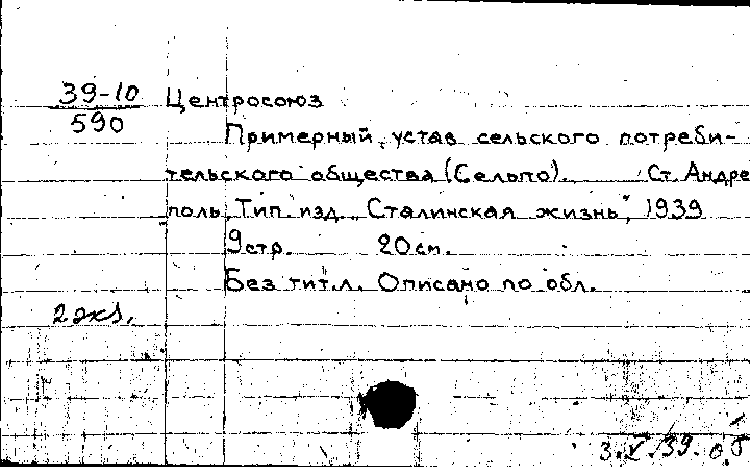 39-10
590
Центросоюз
Примерный устав сельского потреби-
тельского общества (Сельпо). Ст. Андре
поль, Тип. изд. „Сталинская жизнь", 1939
9 стр. 20 см.
Без тит.л. Описано по обл.
2 экз.
3.V.39.